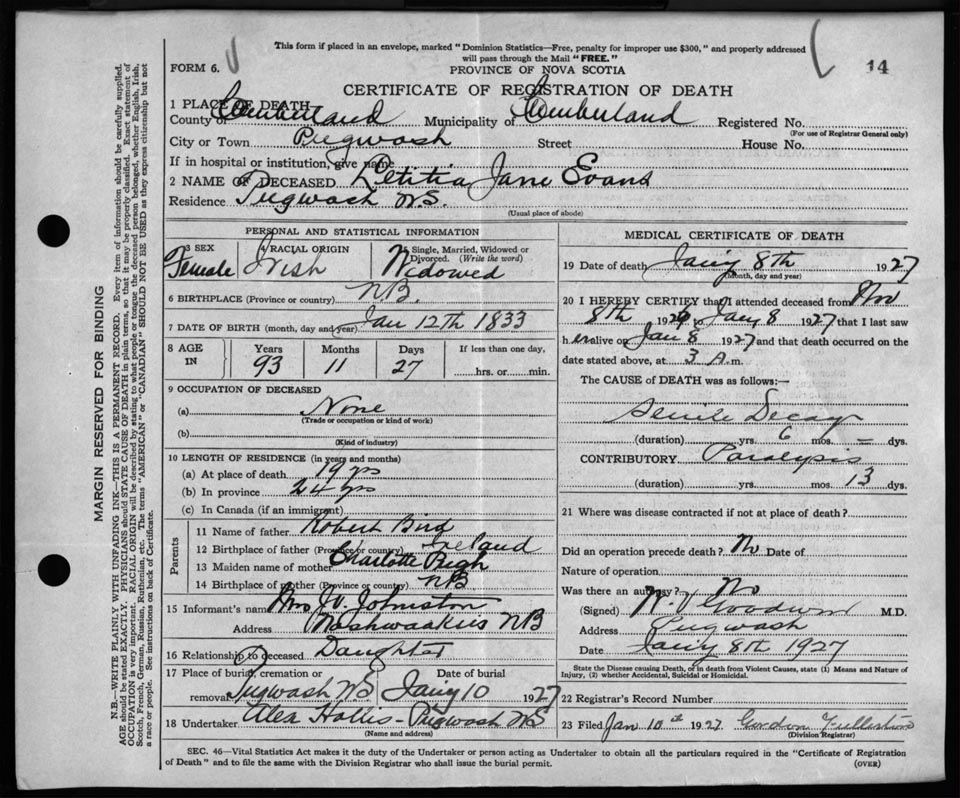 This form if placed in an envelope, marked "Dominion Statistics—Free, penalty for improper use $300," and properly addressed
will pass through the Mail "FREE."
FORM 6.
PROVINCE OF NOVA SCOTIA
14
CERTIFICATE OF REGISTRATION OF DEATH
1 PLACE OF DEATH
County of Cumberland Municipality of Cumberland Registered No.
(For use of Registrar General only)
City or Town Pugwash Street House No.
If in hospital or institution, give name
2 NAME OF DECEASED Letitia Jane Evans
Residence Pugwash N.S.
(Usual place of abode)
PERSONAL AND STATISTICAL INFORMATION
3 SEX 4 RACIAL ORIGIN 5 Single, Married, Widowed or
Divorced. (Write the word)
Female Irish Widowed
6 BIRTHPLACE (Province or country) N.B.
7 DATE OF BIRTH (month, day and year) Jan 12th 1833
8 AGE IN Years Months Days If less than one day,
93 11 27 hrs. or min.
9 OCCUPATION OF DECEASED
(a) None
(Trade or occupation or kind of work)
(b)
(Kind of industry)
10 LENGTH OF RESIDENCE (in years and months)
(a) At place of death 19 yrs
(b) In province 24 yrs
(c) In Canada (if an immigrant)
Parents
11 Name of father Robert Bird
12 Birthplace of father (Province or country) Ireland
13 Maiden name of mother Charlotte
14 Birthplace of mother (Province or country) NB
15 Informant's name Mrs W. Johnston
Address Nashwaaksis NB
16 Relationship to deceased Daughter
17 Place of burial, cremation or Date of burial
removal Pugwash NS Jany 10 1927
18 Undertaker Alex Hollis - Pugwash NS
(Name and address)
MEDICAL CERTIFICATE OF DEATH
19 Date of death Jany 8th 1927
(Month, day and year)
20 I HEREBY CERTIFY that I attended deceased from Nov
8th 1926 to Jany 8 1927 that I last saw
her alive on Jan 8 1927 and that death occurred on the
date stated above, at 3 A.m.
The CAUSE OF DEATH was as follows:—
Senile Decay
(duration) yrs. 6 mos. – dys.
CONTRIBUTORY Paralysis
(duration) yrs. mos. 13 dys.
21 Where was disease contracted if not at place of death?
Did an operation precede death? No Date of
Nature of operation
Was there an autopsy? No
(Signed) Goodwin M.D.
Address Pugwash
Date Jany 8th 1927
State the Disease causing Death, or in death from Violent Causes, state (1) Means and Nature of
Injury, (2) whether Accidental, Suicidal or Homicidal.
22 Registrar's Record Number
23 Filed Jan 10th 1927 Gordon
(Division Registrar)
SEC. 46—Vital Statistics Act makes it the duty of the Undertaker or person acting as Undertaker to obtain all the particulars required in the "Certificate of Registration
of Death" and to file the same with the Division Registrar who shall issue the burial permit.
(OVER)
MARGIN RESERVED FOR BINDING
N.B.—WRITE PLAINLY WITH UNFADING INK—THIS IS A PERMANENT RECORD. Every item of information should be carefully supplied.
AGE should be stated EXACTLY. PHYSICIANS should STATE CAUSE OF DEATH in plain terms, so that it may be properly classified. Exact statement of
OCCUPATION is very important. RACIAL ORIGIN will be described by stating to what people or tongue the deceased person belonged, whether English, Irish,
Scotch, French, German, Russian, Ruthenian, etc. The terms "AMERICAN" or "CANADIAN" SHOULD NOT BE USED as they express citizenship but not
a race or people. See instructions on back of Certificate.